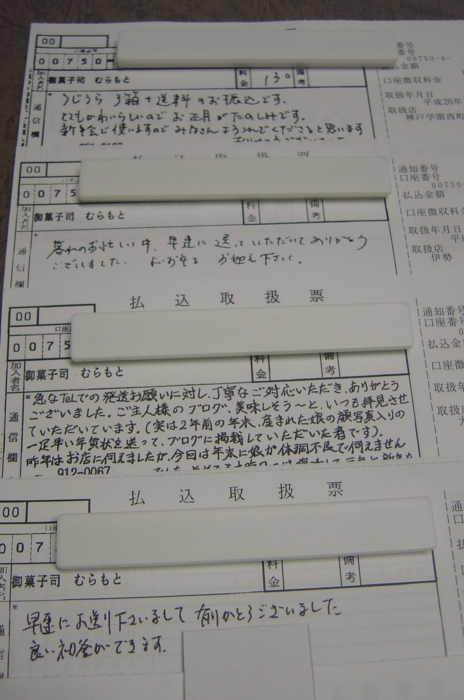 00
番号
00750-4-
0 0 7 5 0
金額
加入者名
御菓子司 むらもと
料金
130
口座徴収料金
3箱+送料のお振込です。
取扱年月日
平成26年
とてもかわいらしいのでお正月がたのしみです。
取扱店
神戸学園西町
通信欄
新年会で使いますのでみなさんよろこんでくださると思います
払込取扱票
00
通知番号
口座番号
0 0 7 5
00750
払込金額
加入者名
御菓子司 むらもと
料金
備考
口座徴収料金
取扱年月日
暮れのお忙しい中、早速に送っていただいてありがとう
取扱店
伊勢
通信欄
ございました。 よいお年を お迎え下さい。
払込取扱票
00
通知番号
口座番号
0 0 7 5
払込金
加入者名
御菓子司 むらもと
料金
備考
口座徴
取扱年
通信欄
急なTELでの発送お願いに対し、丁寧なご対応いただき、ありがとう
ございました。ご主人様のブログ、美味しそう〜と、いつも拝見させ
ていただいています。(実は2年前の年末、産まれた娘の顔写真入りの
一足早い年賀状を送って、ブログに掲載していただいた者です)。
昨年はお店に伺えましたが、今回は年末に娘が体調不良で伺えません
912-0067
払込取扱票
00
0 0 7
御菓子司 むらもと
料金
備考
早速にお送り下さいまして 有りがとうございました
良い初釜ができます。